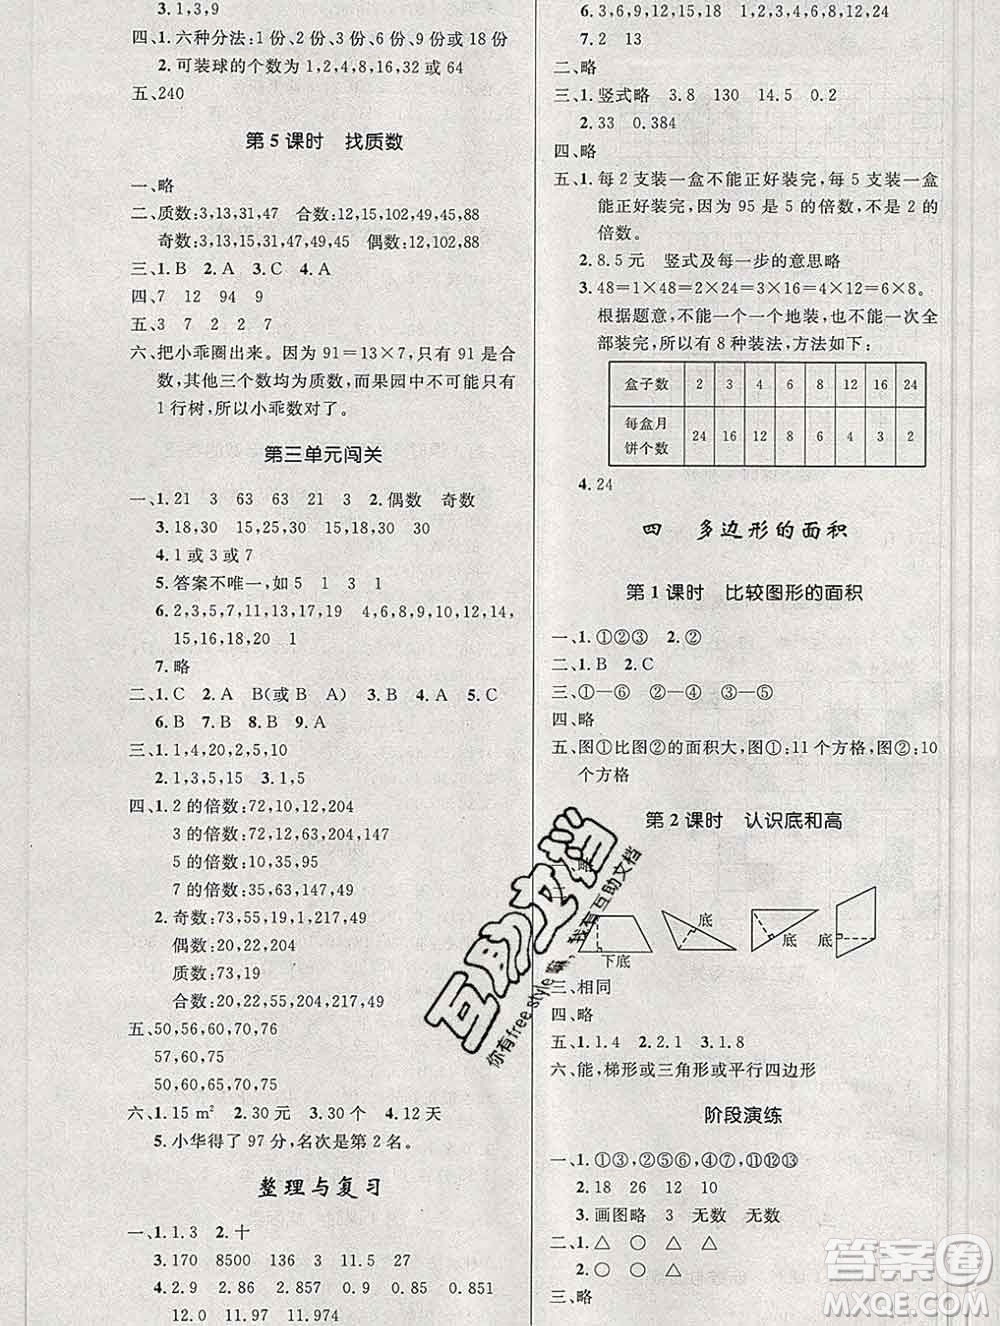 3. 1,3,9
四、1. 六种分法:1份、2份、3份、6份、9份或18份
2. 可装球的个数为1,2,4,8,16,32或64
五、240
第5课时 找质数
一、略
二、质数:3,13,31,47 合数:12,15,102,49,45,88
奇数:3,13,15,31,47,49,45 偶数:12,102,88
三、1. B 2. A 3. C 4. A
四、7 12 94 9
五、3 7 2 2 7
六、把小乖圈出来。因为91=13×7,只有91是合
数,其他三个数均为质数,而果园中不可能只有
1行树,所以小乖数对了。
第三单元闯关
一、1. 21 3 63 63 21 3 2. 偶数 奇数
3. 18,30 15,30 15,18,30 30
4. 1或3或7
5. 答案不唯一,如5 1 3 1
6. 2,3,5,7,11,13,17,19 4,6,8,9,10,12,14,
15,16,18,20 1
7. 略
二、1. C 2. A B(或B A) 3. B 4. A 5. C
6. B 7. B 8. B 9. A
三、1. 1,4,20,2,5,10
2. 1,3,5,15 3. 1,5
四、1. 2的倍数:72,10,12,204
3的倍数:72,63,12,204,39,147
5的倍数:10,35,95
7的倍数:35,63,147,49
2. 奇数:73,55,19,1,217,49
偶数:20,22,204
质数:73,19
合数:20,22,55,204,217,49
五、50,56,60,70,76
57,60,75
50,60,65,70,75
六、1. 15 m² 2. 30元 3. 30个 4. 12天
5. 小华得了97分,名次是第2名。
整理与复习
一、1. 1.3 2. 十
3. 170 8500 136 3 11.5 27
4. 2.9 2.86 2.857 0.9 0.85 0.851
12.0 11.97 11.974
6. 3,6,9,12,15,18,21,24 1,2,3,4,6,8,12,24
7. 2 13
二、略
三、1. 竖式略 3.8 130 14.5 0.2
2. 33 0.384
四、略
五、1. 每2支装一盒不能正好装完,每5支装一盒
能正好装完,因为95是5的倍数,不是2的
倍数。
2. 8.5元 竖式及每一步的意思略
3. 48=1×48=2×24=3×16=4×12=6×8。
根据题意,不能一个一个地装,也不能一次全
部装完,所以有8种装法,方法如下:
盒子数 2 3 4 6 8 12 16 24
每盒月饼个数 24 16 12 8 6 4 3 2
4. 24
四 多边形的面积
第1课时 比较图形的面积
一、1. ①②③ 2. ②
二、1. B 2. C
三、①—⑥ ②—④ ③—⑤
四、略
五、图①比图②的面积大,图①:11个方格,图②:10
个方格
第2课时 认识底和高
下底 底 底 底
三、相同
四、略
五、1. 1.4 2. 2.1 3. 1.8
六、能,梯形或三角形或平行四边形
阶段演练
一、1. ①③⑤ ②⑥⑨ ④⑦⑧ ⑪⑫⑬
2. 18 26 12 10
3. 画图略 3 无数 无数
二、1. △ ○ △ △
2. ○ △ ○ ○
三、略
互助文档
你有free style嘛,我有互助文档
答案圈
MXQE.COM